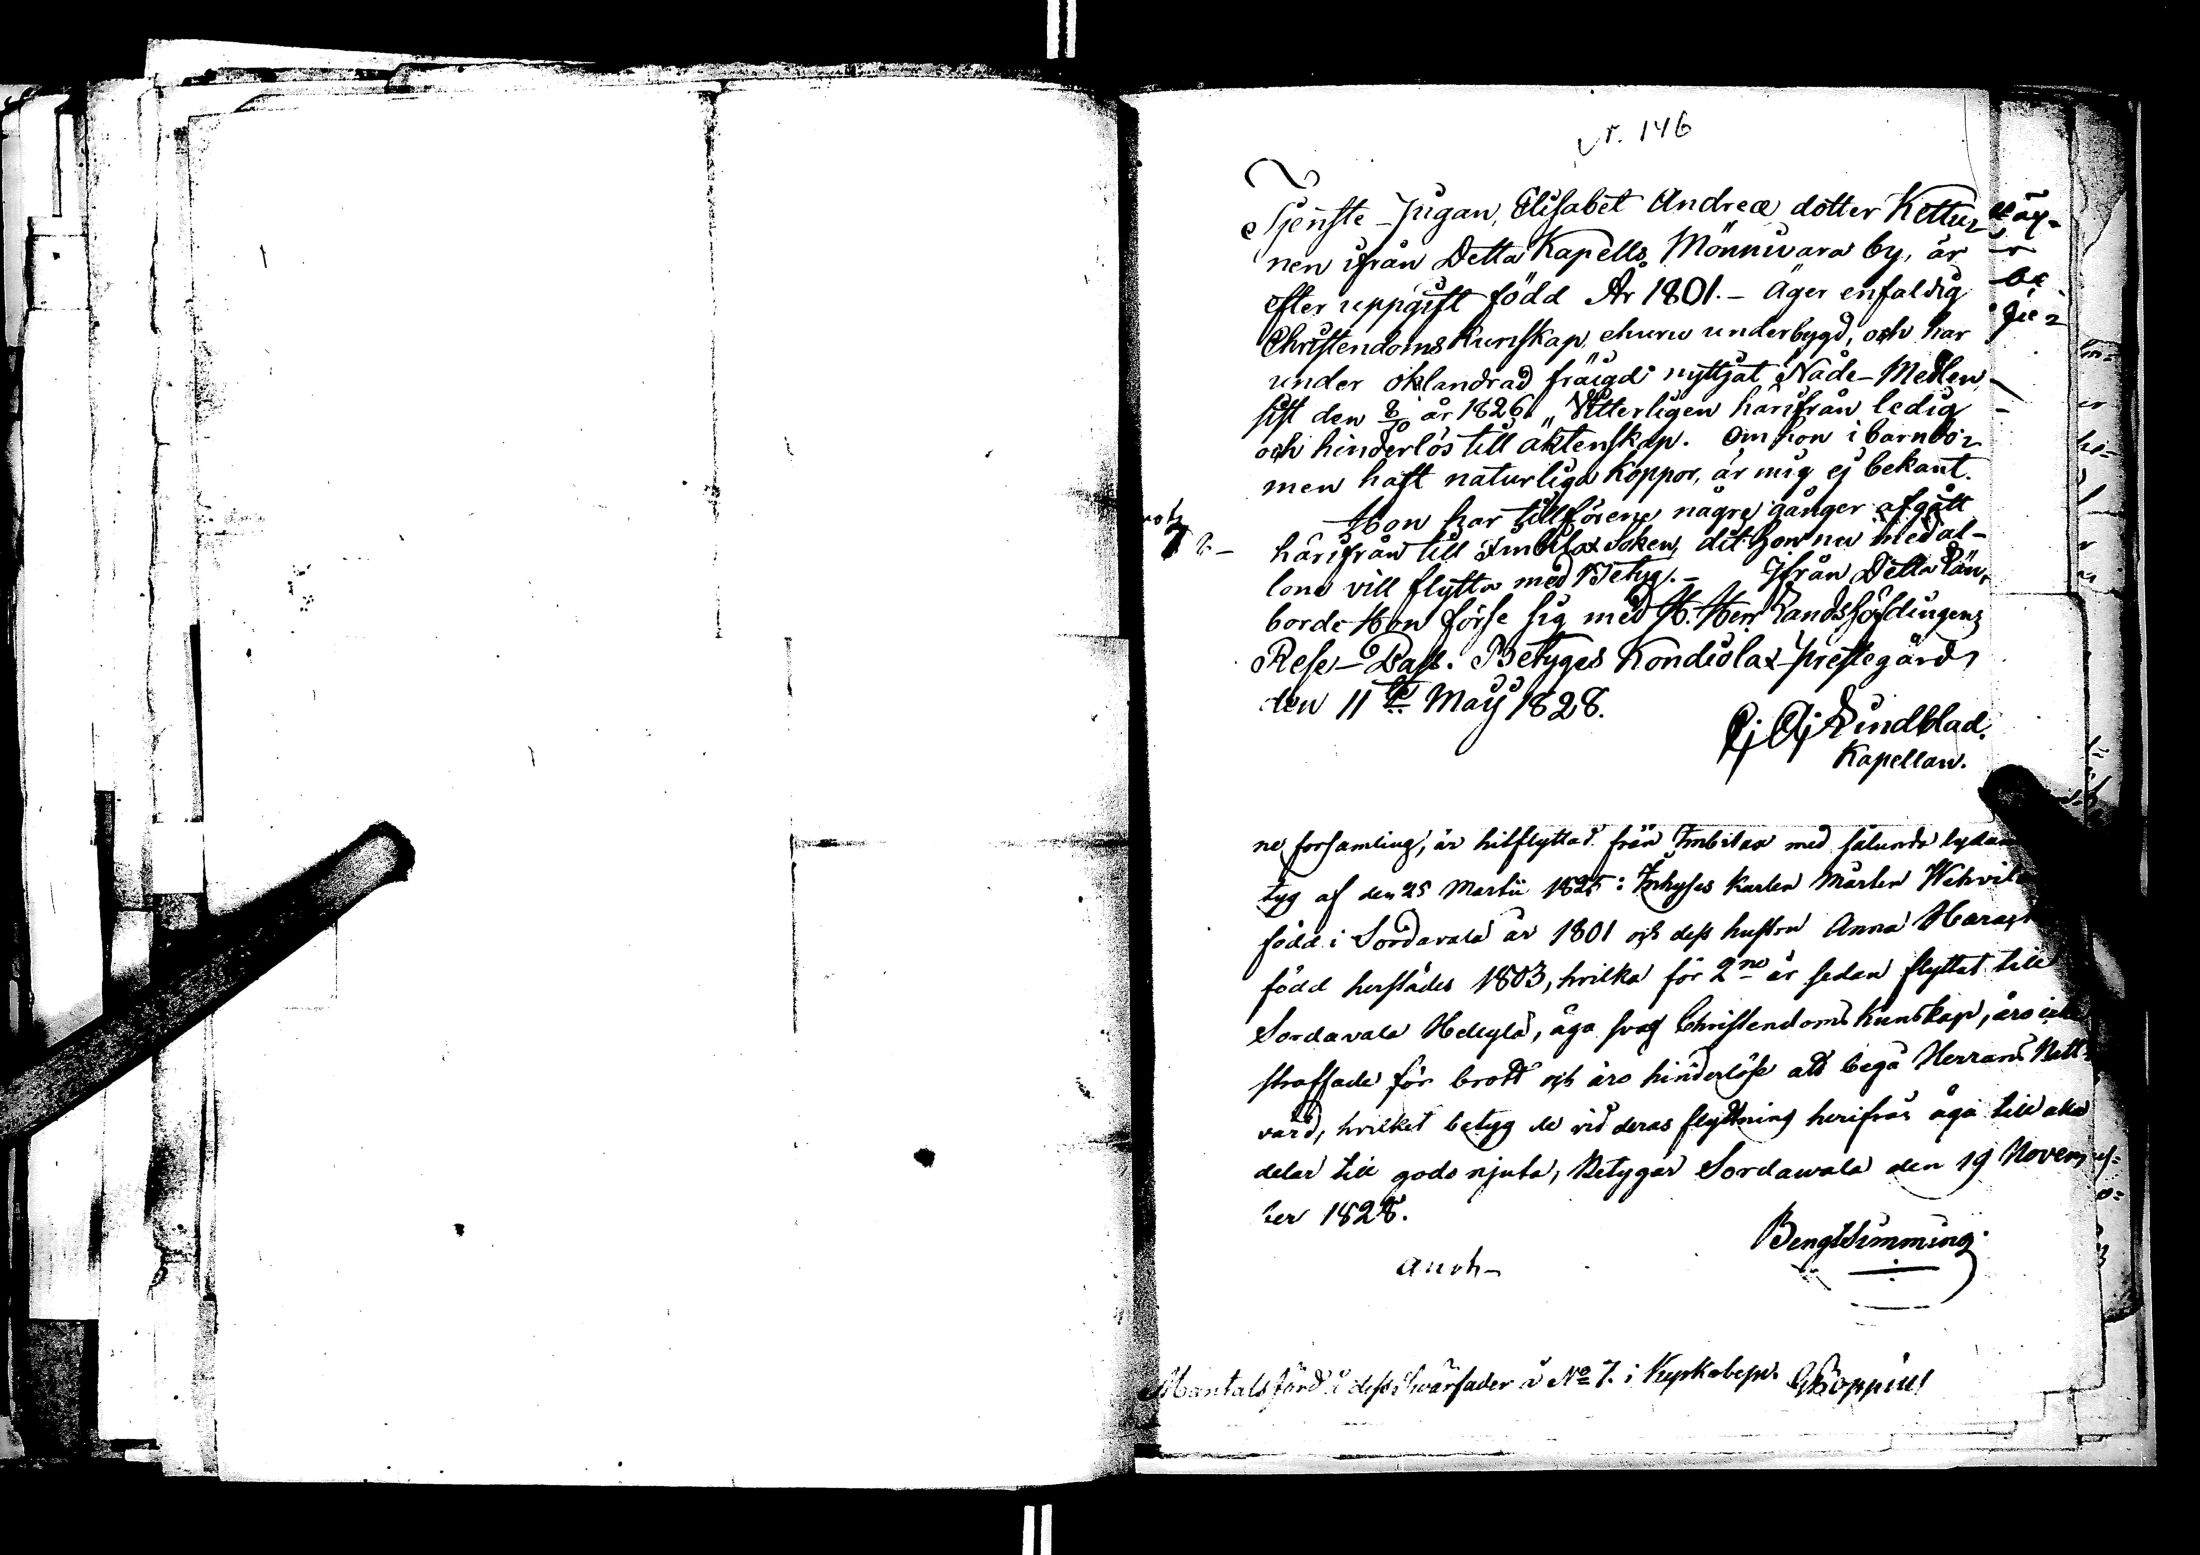 N. 146
Tjenste-Pigan, Elisabet Andreæ dotter Kettu-
nen ifrån Detta Kapells Mönnivara by, är
efter uppgift född År 1801. - Äger enfaldig
Christendoms Kunskap, ehuru underbygd, och har
under oklandrad frägd nyttjat Nåde-Medlen,
sist den 8/10 år 1826. Vitterligen härifrån ledig
och hinderlös till äktenskap. Om hon i barndo-
men haft naturliga Koppor, är mig ej bekant.
Hon har tillförene några gånger afgått
härifrån till Imbilax Soken, dit hon nu med al-
lona vill flytta med Betyg. - Ifrån Detta Län,
borde Hon förse sig med H. Herr Landshöfdingens
Rese-Pass. Betygas Kondiolax Prestegård,
den 11te Maij 1828.
Lindblad.
Kapellan.
ne församling, är hitflyttad från Imbilax med sålunda
tyg af den 25 Martii 1828: Inhyses Karlen Mårten
född i Sordavala år 1801 och dess hustru Anna
född herstädes 1803, hvilka för 2ne år sedan flyttat till
Sordavala Helylä, äga svag Christendoms Kunskap, äro icke
straffade för brott och äro hinderlöse att begå Herrans Natt-
vard, hvilket betyg de vid deras flyttning herifrån äga till alla
delar till godo njuta, Betygar Sordawala den 19 Novem-
ber 1828.
Bengt Simming.
Mantalsförd å dess Svärfader å No 7. i